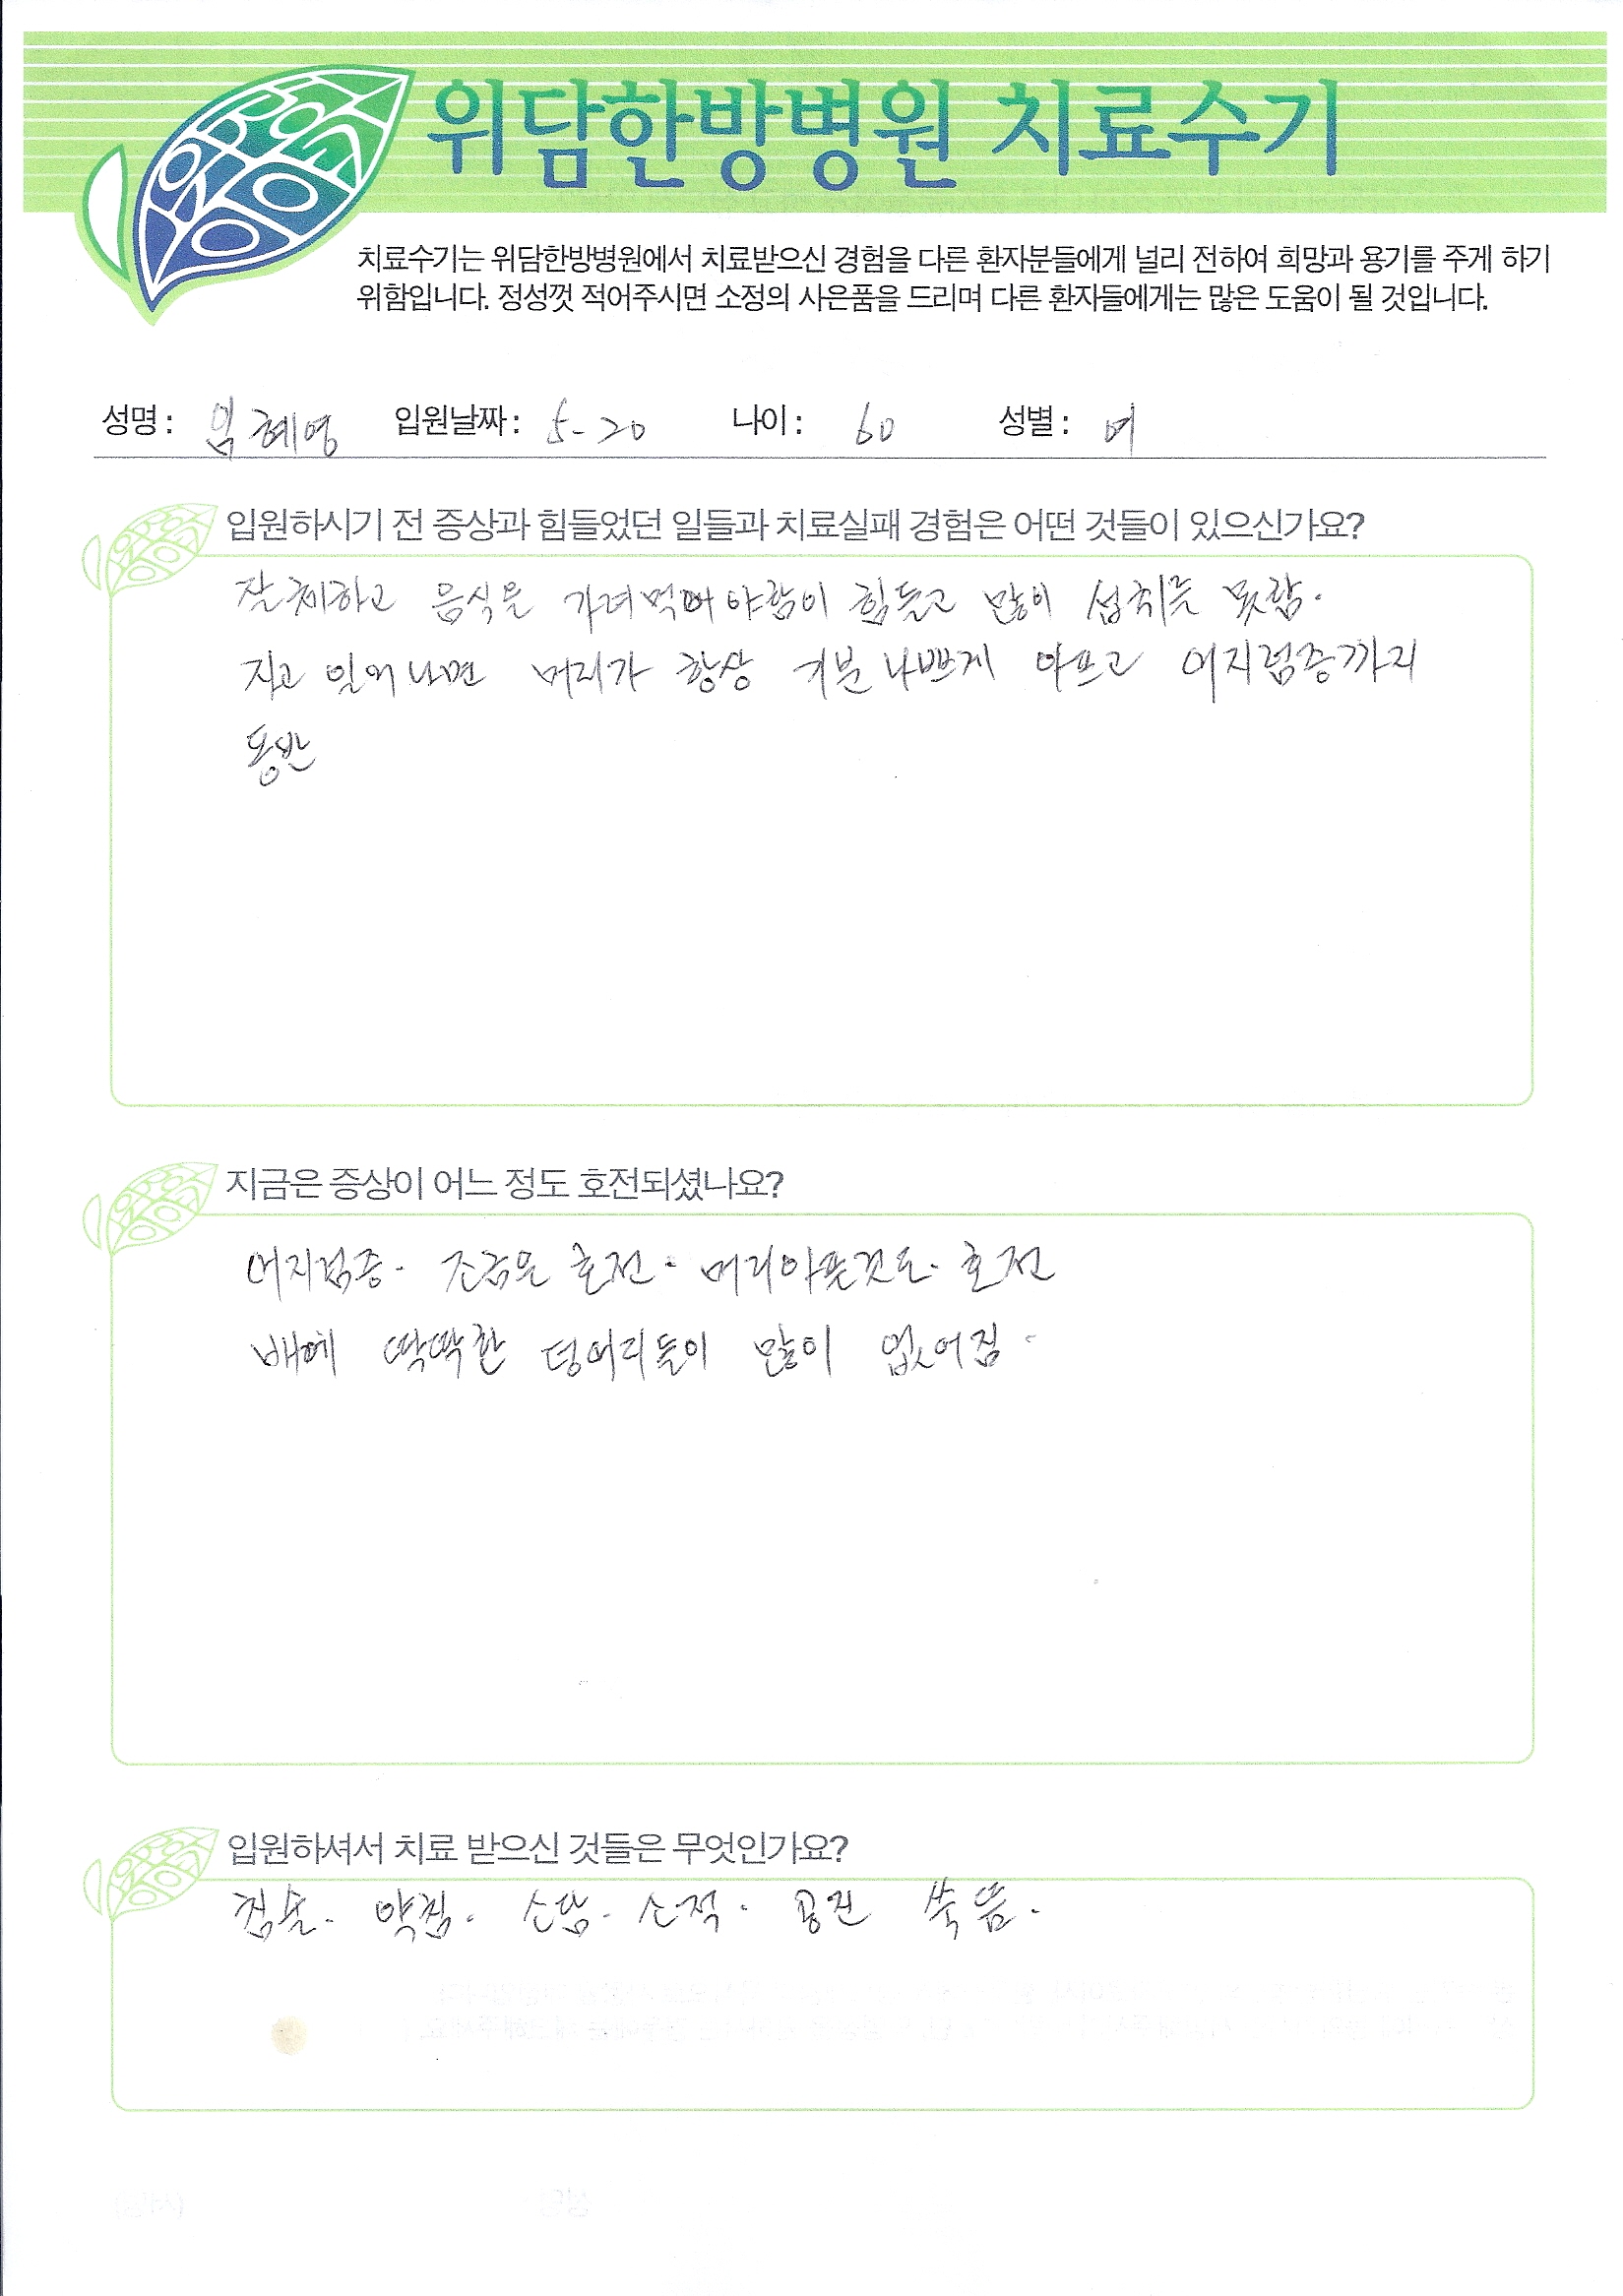 위담한방병원 치료수기
치료수기는 위담한방병원에서 치료받으신 경험을 다른 환자분들에게 널리 전하여 희망과 용기를 주게 하기
위함입니다. 정성껏 적어주시면 소정의 사은품을 드리며 다른 환자들에게는 많은 도움이 될 것입니다.
성명 : 임혜영 입원날짜 : 5-20 나이 : 60 성별 : 여
입원하시기 전 증상과 힘들었던 일들과 치료실패 경험은 어떤 것들이 있으신가요?
잘 체하고 음식을 가려먹어야함이 힘들고 많이 섭취를 못함.
자고 일어나면 머리가 항상 기분나쁘게 아프고 어지럼증까지
동반
지금은 증상이 어느 정도 호전되셨나요?
어지럼증. 조금은 호전. 머리아픈것도. 호전
배에 딱딱한 덩어리들이 많이 없어짐.
입원하셔서 치료 받으신 것들은 무엇인가요?
침술. 약침. 소담. 소적. 공진 쑥뜸.